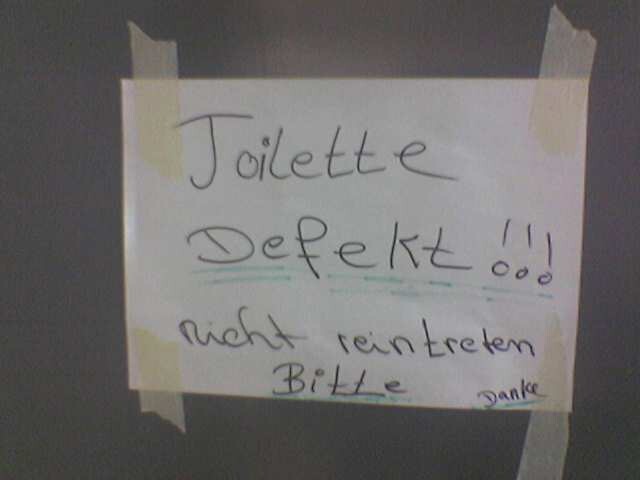 Toilette
Defekt!!!
nicht reintreten
Bitte Danke